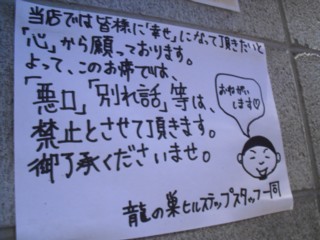 当店では皆様に「幸せ」になって頂きたいと
「心」から願っております。
よって、このお席では、
「悪口」「別れ話」等は、
禁止とさせて頂きます。
御了承くださいませ。
おねがい
します♡
龍の巣ヒルステップスタッフ一同